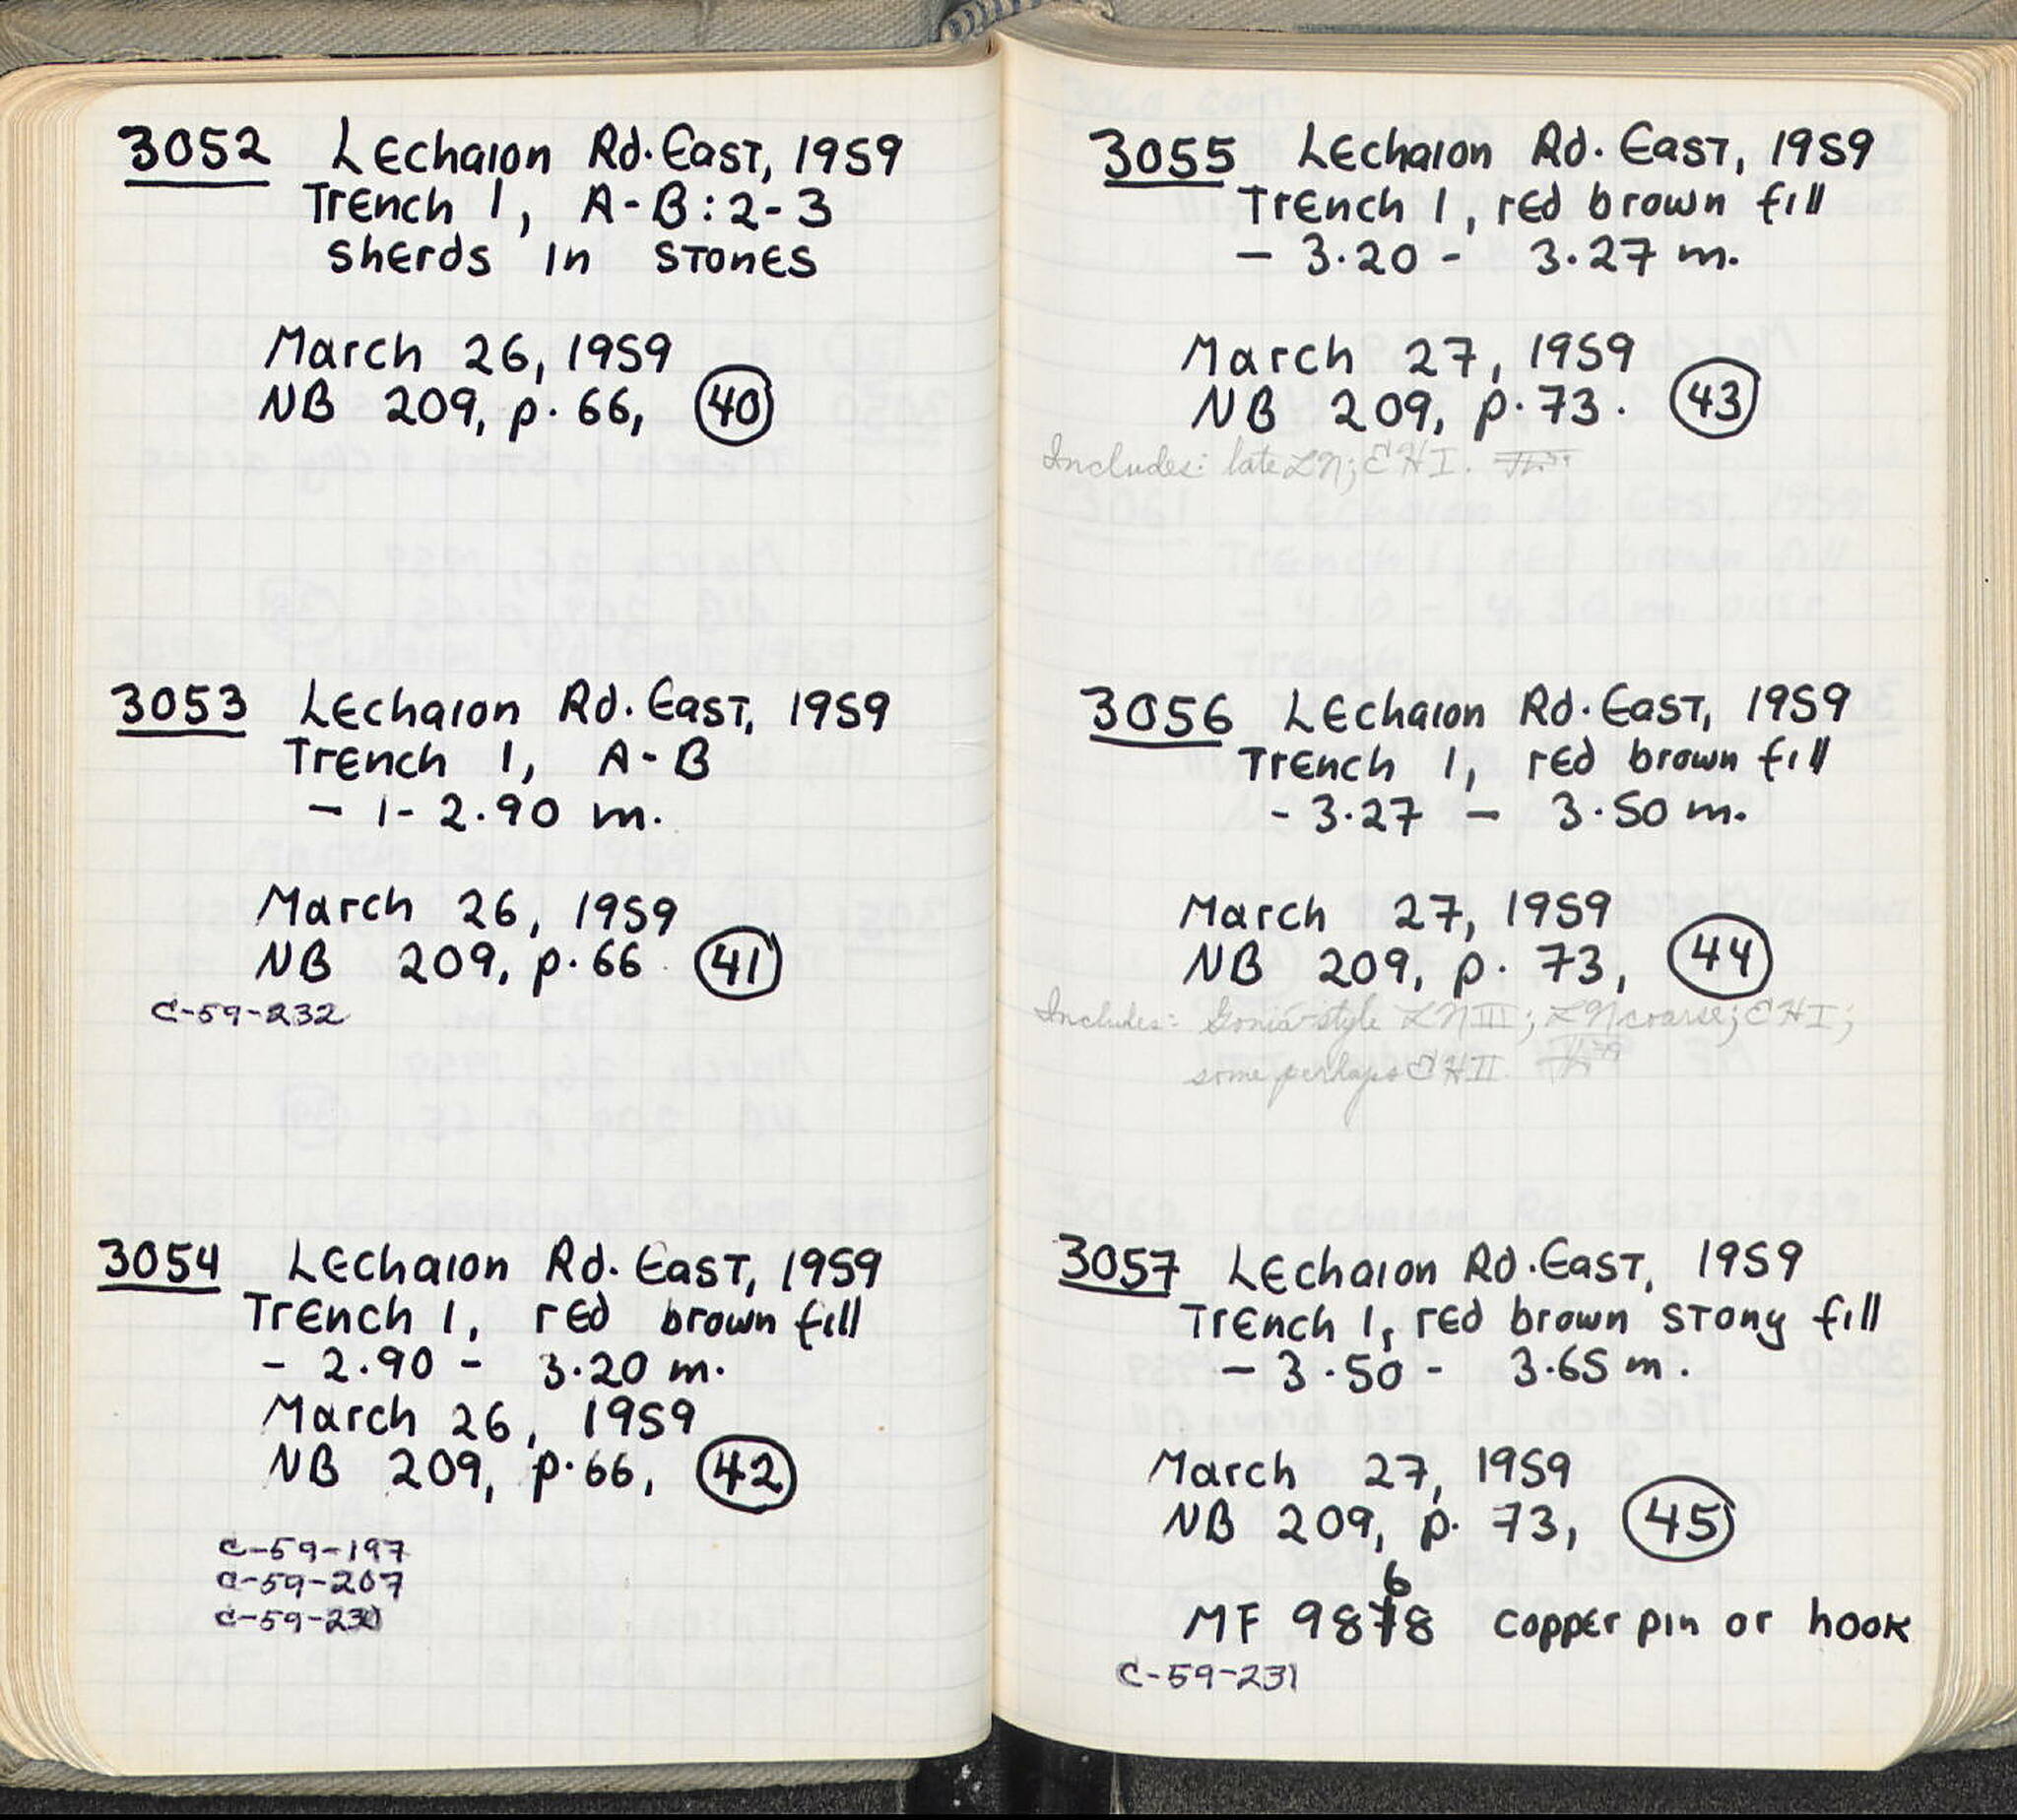 3052 Lechaion Rd. East, 1959
Trench 1, A-B:2-3
sherds in stones
March 26, 1959
NB 209, p. 66, 40
3053 Lechaion Rd. East, 1959
Trench 1, A-B
- 1- 2.90 m.
March 26, 1959
NB 209, p. 66 41
C-59-232
3054 Lechaion Rd. East, 1959
Trench 1, red brown fill
- 2.90 - 3.20 m.
March 26, 1959
NB 209, p. 66, 42
C-59-197
C-59-207
3055 Lechaion Rd. East, 1959
Trench 1, red brown fill
- 3.20 - 3.27 m.
March 27, 1959
NB 209, p. 73. 43
Includes: late LN; EH I.
3056 Lechaion Rd. East, 1959
Trench 1, red brown fill
- 3.27 - 3.50 m.
March 27, 1959
NB 209, p. 73, 44
Includes: Gonia-style LN III; LN coarse; EH I;
some perhaps EH II.
3057 Lechaion Rd. East, 1959
Trench 1, red brown stony fill
- 3.50 - 3.65 m.
March 27, 1959
NB 209, p. 73, 45
MF 9868 copper pin or hook
C-59-231